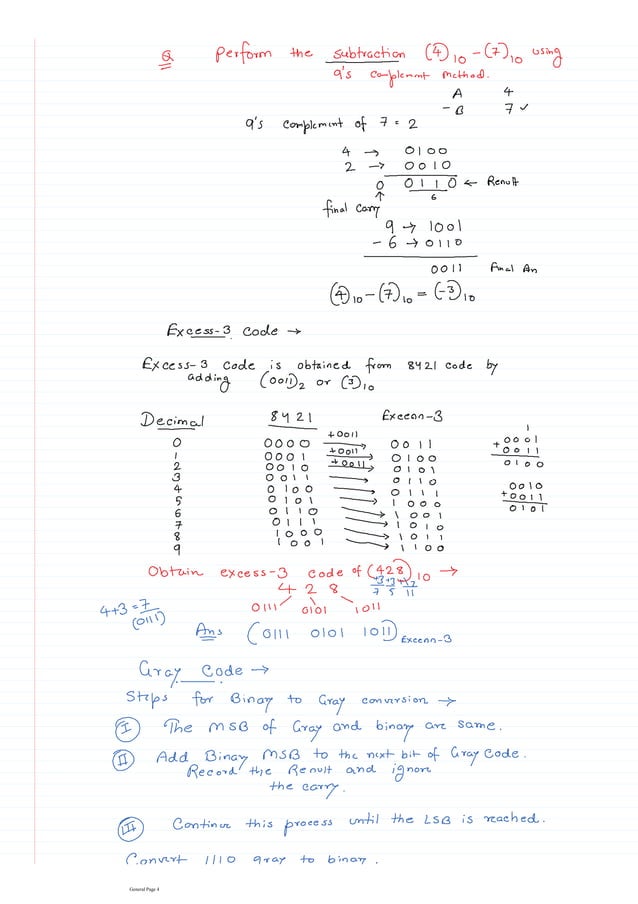 Q Perform the subtraction (4)10 - (7)10 using
9's complement method.
A 4
- B 7 ✓
9's complement of 7 = 2
4 → 0100
2 → 0010
0 0110 ← Result
6
↑
final carry
9 → 1001
- 6 → 0110
0011 Final An
(4)10 - (7)10 = (-3)10
Excess-3 code →
Excess-3 code is obtained from 8421 code by
adding (0011)2 or (3)10
Decimal 8421 Excess-3
0 0000 +0011 0011
1 0001 +0011 0100
2 0010 +0011 0101
3 0011 0110
4 0100 0111
5 0101 1000
6 0110 1001
7 0111 1010
8 1000 1011
9 1001 1100
1
0001
+ 0011
0100
0010
+0011
0101
Obtain excess-3 code of (428)10 →
+3 +3 +3
7 5 11
4 2 8
0111 0101 1011
4+3=7
(0111)
Ans (0111 0101 1011)Excess-3
Gray Code →
Steps for Binary to Gray conversion →
I The MSB of Gray and binary are same.
II Add Binary MSB to the next bit of Gray Code.
Record the Result and ignore
the carry.
III Continue this process until the LSB is reached.
Convert 1110 gray to binary.
General Page 4